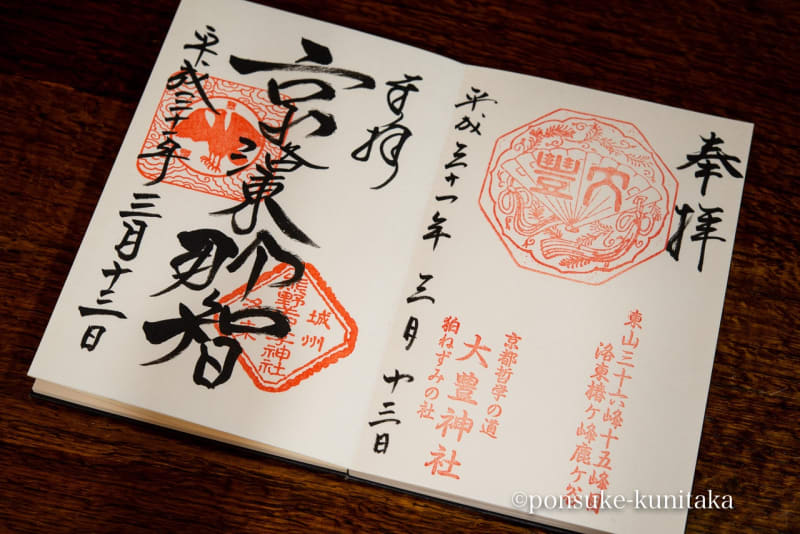 奉拝
大豊
東山三十六峰十五峰目
洛東椿ケ峰鹿ケ谷
京都哲学の道
大豊神社
狛ねずみの社
平成三十一年三月十三日
奉拝
京洛東那智
城州
熊野若王子神社
洛東
平成三十一年三月十三日
©ponsuke-kunitaka